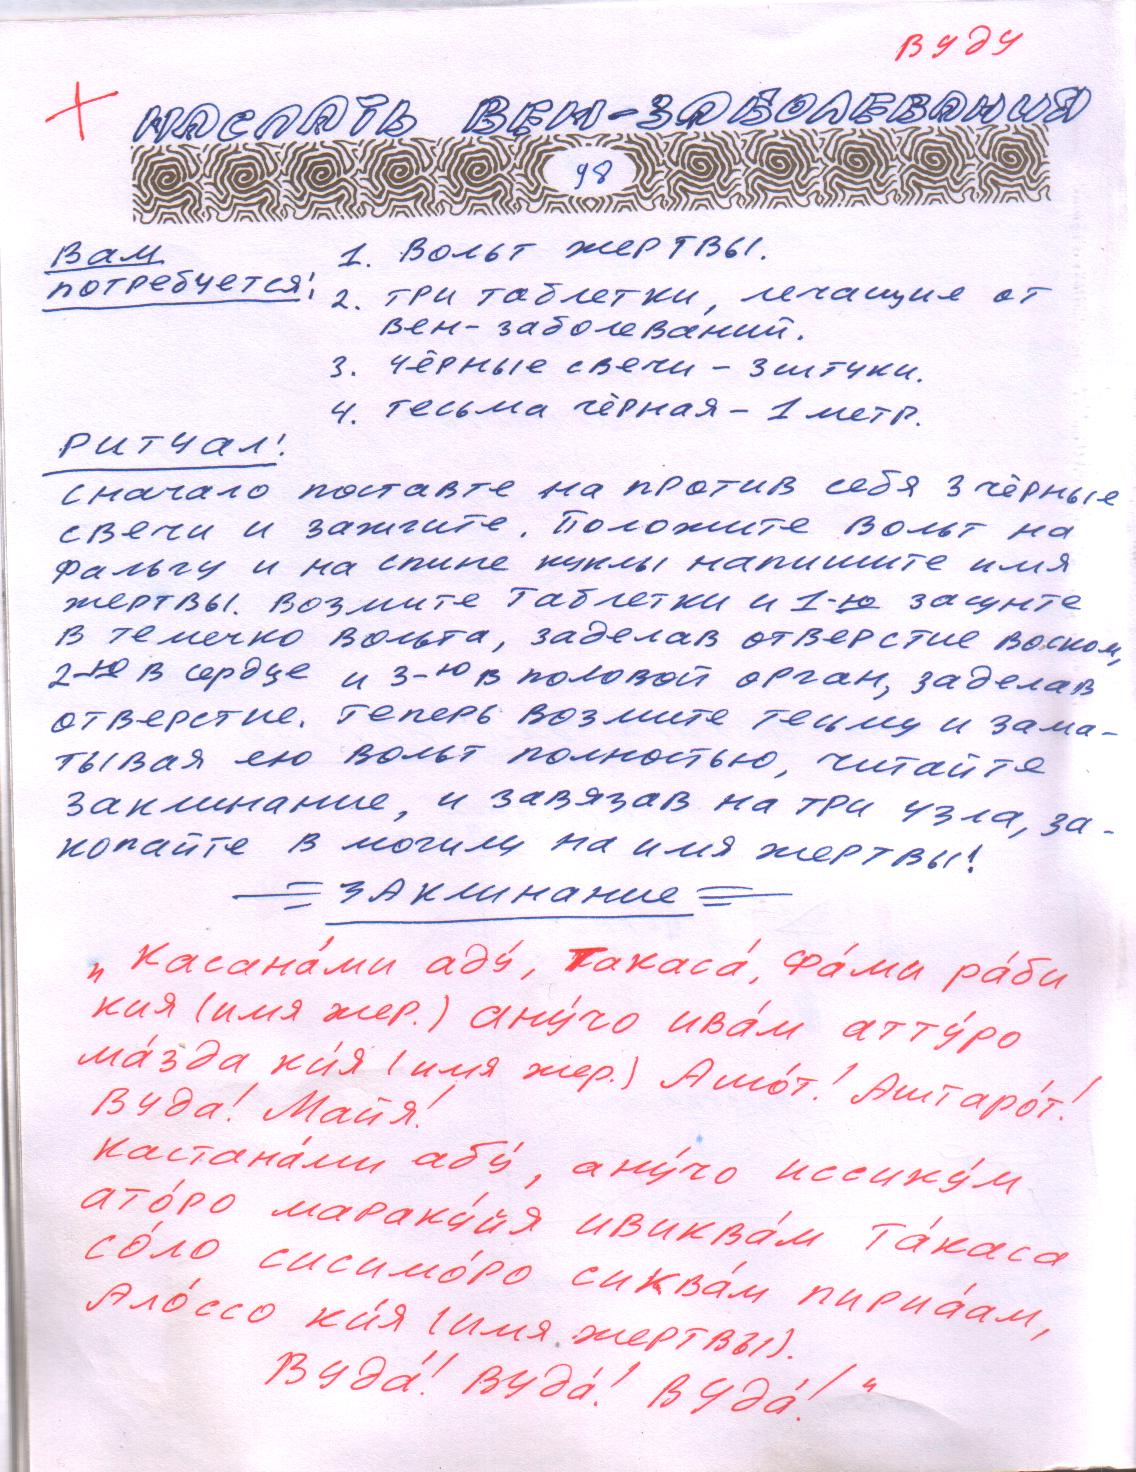 ВУДУ
НАСЛАТЬ ВЕН-ЗАБОЛЕВАНИЯ
98
Вам
потребуется!
1. Вольт жертвы.
2. Три таблетки, лечащие от
вен-заболеваний.
3. Чёрные свечи - 3 штуки.
4. Тесьма чёрная - 1 метр.
Ритуал!
Сначало поставте на против себя 3 чёрные
свечи и зажгите. Положите Вольт на
Фальгу и на спине куклы напишите имя
жертвы. Возмите таблетки и 1-ю засунте
в темечко вольта, заделав отверстие воском,
2-ю в сердце и 3-ю в половой орган, заделав
отверстие. Теперь возмите тесьму и зама-
тывая ею вольт полностью, читайте
заклинание, и завязав на три узла, за-
копайте в могилу на имя жертвы!
= Заклинание =
„Касана́ми аду́, Такаса́, Фа́ми ра́би
кия (имя жер.) ану́чо ива́м атту́ро
ма́зда ки́я (имя жер.) Ашо́т! Аштаро́т!
Вуда! Майя!
Кастана́ми абу́, ану́чо иссику́м
ато́ро мараку́йя ивиква́м Та́каса
со́ло сисимо́ро сиква́м пириа́ам,
Ало́ссо ки́я (имя жертвы).
Вуда́! Вуда́! Вуда́!"